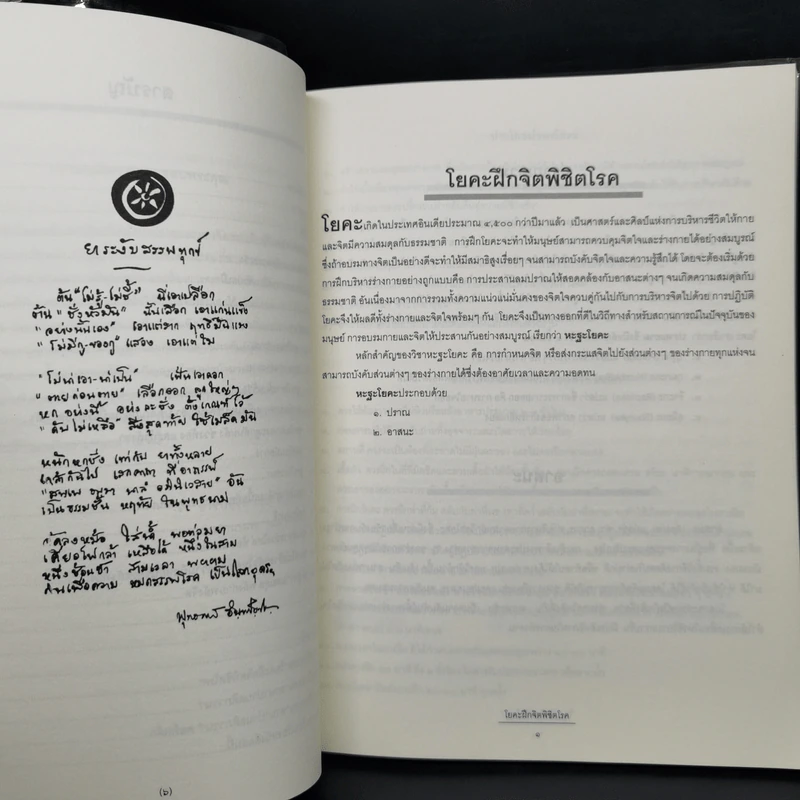 ยาระงับสรรพทุกข์
ต้น "ไม่รู้-ไม่ชี้" นี่เอาเปลือก
ต้น "ชั่งหัวมัน" นั้นเลือก เอาแก่นแข็ง
"อย่างนั้นเอง" เอาแต่ราก ฤทธิ์มันแรง
"ไม่มีกู-ของกู" แสวง เอาแต่ใบ
"ไม่น่าเอา-น่าเป็น" เฟ้นเอาดอก
"ตายก่อนตาย" เลือกออก ลูกใหญ่ๆ
หก อย่างนี้ อย่างละชั่ง ตั้งเกณฑ์ไว้
"ดับไม่เหลือ" สิ่งสุดท้าย ใช้เมล็ดมัน
หนักหกชั่ง เท่ากับ ยาทั้งหลาย
เคล้ากันไป เสกคาถา ที่อาถรรพ์
"สพฺเพ ธมฺมา นาลํ อภินิเวสาย" อัน
เป็นธรรมชั้น หฤทัย ในพุทธนาม
จัดลงหม้อ ใส่น้ำ พอท่วมยา
เคี่ยวไฟกล้า เหลือได้ หนึ่งในสาม
หนึ่งช้อนชา สามเวลา พยายาม
กินเพื่อความ หมดสรรพโรค เป็นโลกอุดร
พุทธทาส อินฺทปญฺโญ
(๖)
โยคะฝึกจิตพิชิตโรค
โยคะเกิดในประเทศอินเดียประมาณ ๔,๕๐๐ กว่าปีมาแล้ว เป็นศาสตร์และศิลป์แห่งการบริหารชีวิตให้กาย
และจิตมีความสมดุลกับธรรมชาติ การฝึกโยคะจะทำให้มนุษย์สามารถควบคุมจิตใจและร่างกายได้อย่างสมบูรณ์
ซึ่งถ้าอบรมทางจิตเป็นอย่างดีจะทำให้มีสมาธิสูงเรื่อยๆ จนสามารถบังคับจิตใจและความรู้สึกได้ โดยจะต้องเริ่มด้วย
การฝึกบริหารร่างกายอย่างถูกแบบคือ การประสานลมปราณให้สอดคล้องกับอาสนะต่างๆ จนเกิดความสมดุลกับ
ธรรมชาติ อันเนื่องมาจากการรวมทั้งความแน่วแน่มั่นคงของจิตใจควบคู่กันไปกับการบริหารจิตไปด้วย การปฏิบัติ
โยคะจึงให้ผลดีทั้งร่างกายและจิตใจพร้อมๆ กัน โยคะจึงเป็นทางออกที่ดีในวิถีทางสำหรับสถานการณ์ในปัจจุบันของ
มนุษย์ การอบรมกายและจิตให้ประสานกันอย่างสมบูรณ์ เรียกว่า หะฐะโยคะ
หลักสำคัญของวิชาหะฐะโยคะ คือ การกำหนดจิต หรือส่งกระแสจิตไปยังส่วนต่างๆ ของร่างกายทุกแห่งจน
สามารถบังคับส่วนต่างๆ ของร่างกายได้ซึ่งต้องอาศัยเวลาและความอดทน
หะฐะโยคะประกอบด้วย
๑. ปราณ
๒. อาสนะ
โยคะฝึกจิตพิชิตโรค
๑